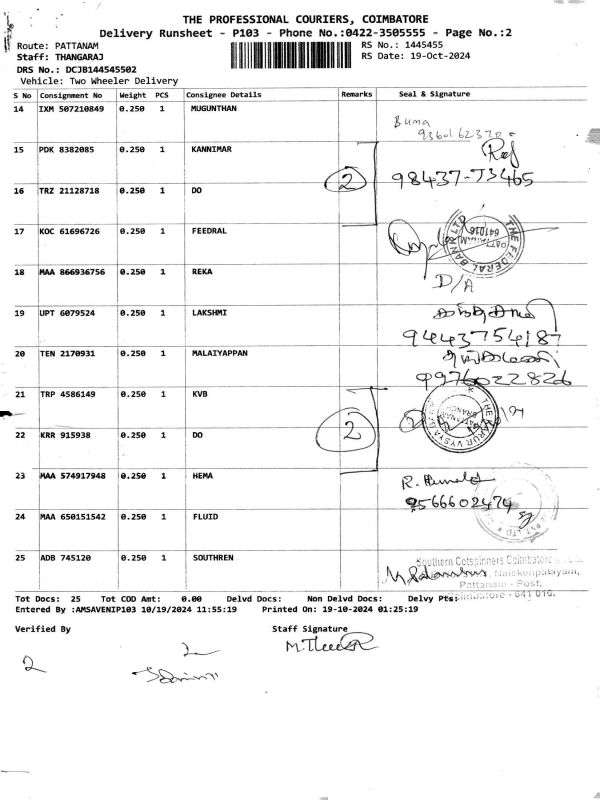 THE PROFESSIONAL COURIERS, COIMBATORE
Delivery Runsheet - P103 - Phone No.:0422-3505555 - Page No.:2
Route: PATTANAM RS No.: 1445455
Staff: THANGARAJ RS Date: 19-Oct-2024
DRS No.: DCJB144545502
Vehicle: Two Wheeler Delivery
S No Consignment No Weight PCS Consignee Details Remarks Seal & Signature
14 IXM 507210849 0.250 1 MUGUNTHAN
15 PDK 8382085 0.250 1 KANNIMAR
98437-73465
16 TRZ 21128718 0.250 1 DO 2
17 KOC 61696726 0.250 1 FEEDRAL
THE FEDERAL BANK LTD
641016
18 MAA 866936756 0.250 1 REKA D/A
19 UPT 6079524 0.250 1 LAKSHMI
9443754187
20 TEN 2170931 0.250 1 MALAIYAPPAN
9976022826
21 TRP 4586149 0.250 1 KVB
THE KARUR VYSYA
22 KRR 915938 0.250 1 DO 2
23 MAA 574917948 0.250 1 HEMA
9566602474
24 MAA 650151542 0.250 1 FLUID
25 ADB 745120 0.250 1 SOUTHREN
Southern Cotspinners Coimbatore
Naickenpalayam,
Pattanam - Post,
Coimbatore - 641 016.
Tot Docs: 25 Tot COD Amt: 0.00 Delvd Docs: Non Delvd Docs: Delvy Pts:
Entered By :AMSAVENIP103 10/19/2024 11:55:19 Printed On: 19-10-2024 01:25:19
Verified By Staff Signature
2 2